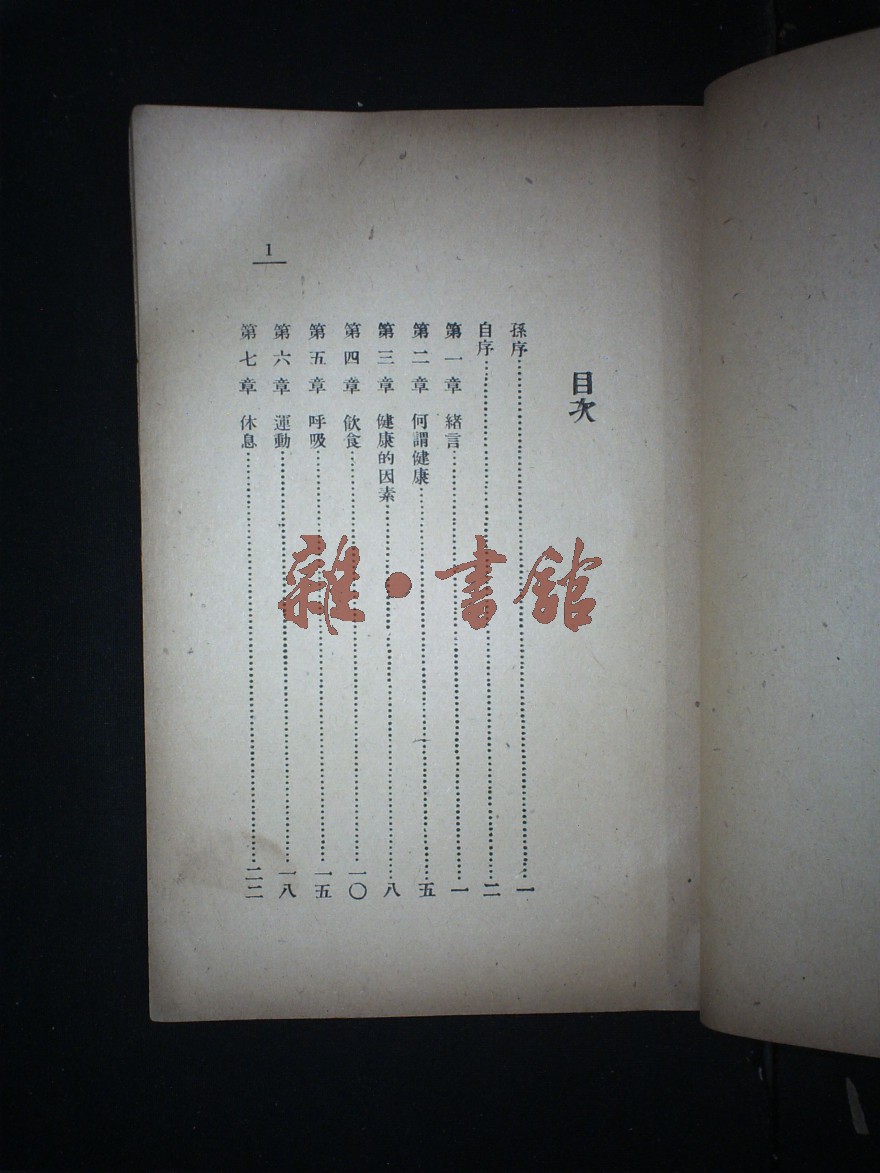 目次
孫序……一
自序……二
第一章 緒言……一
第二章 何謂健康……五
第三章 健康的因素……八
第四章 飲食……一〇
第五章 呼吸……一五
第六章 運動……一八
第七章 休息……二二
1
雜·書館